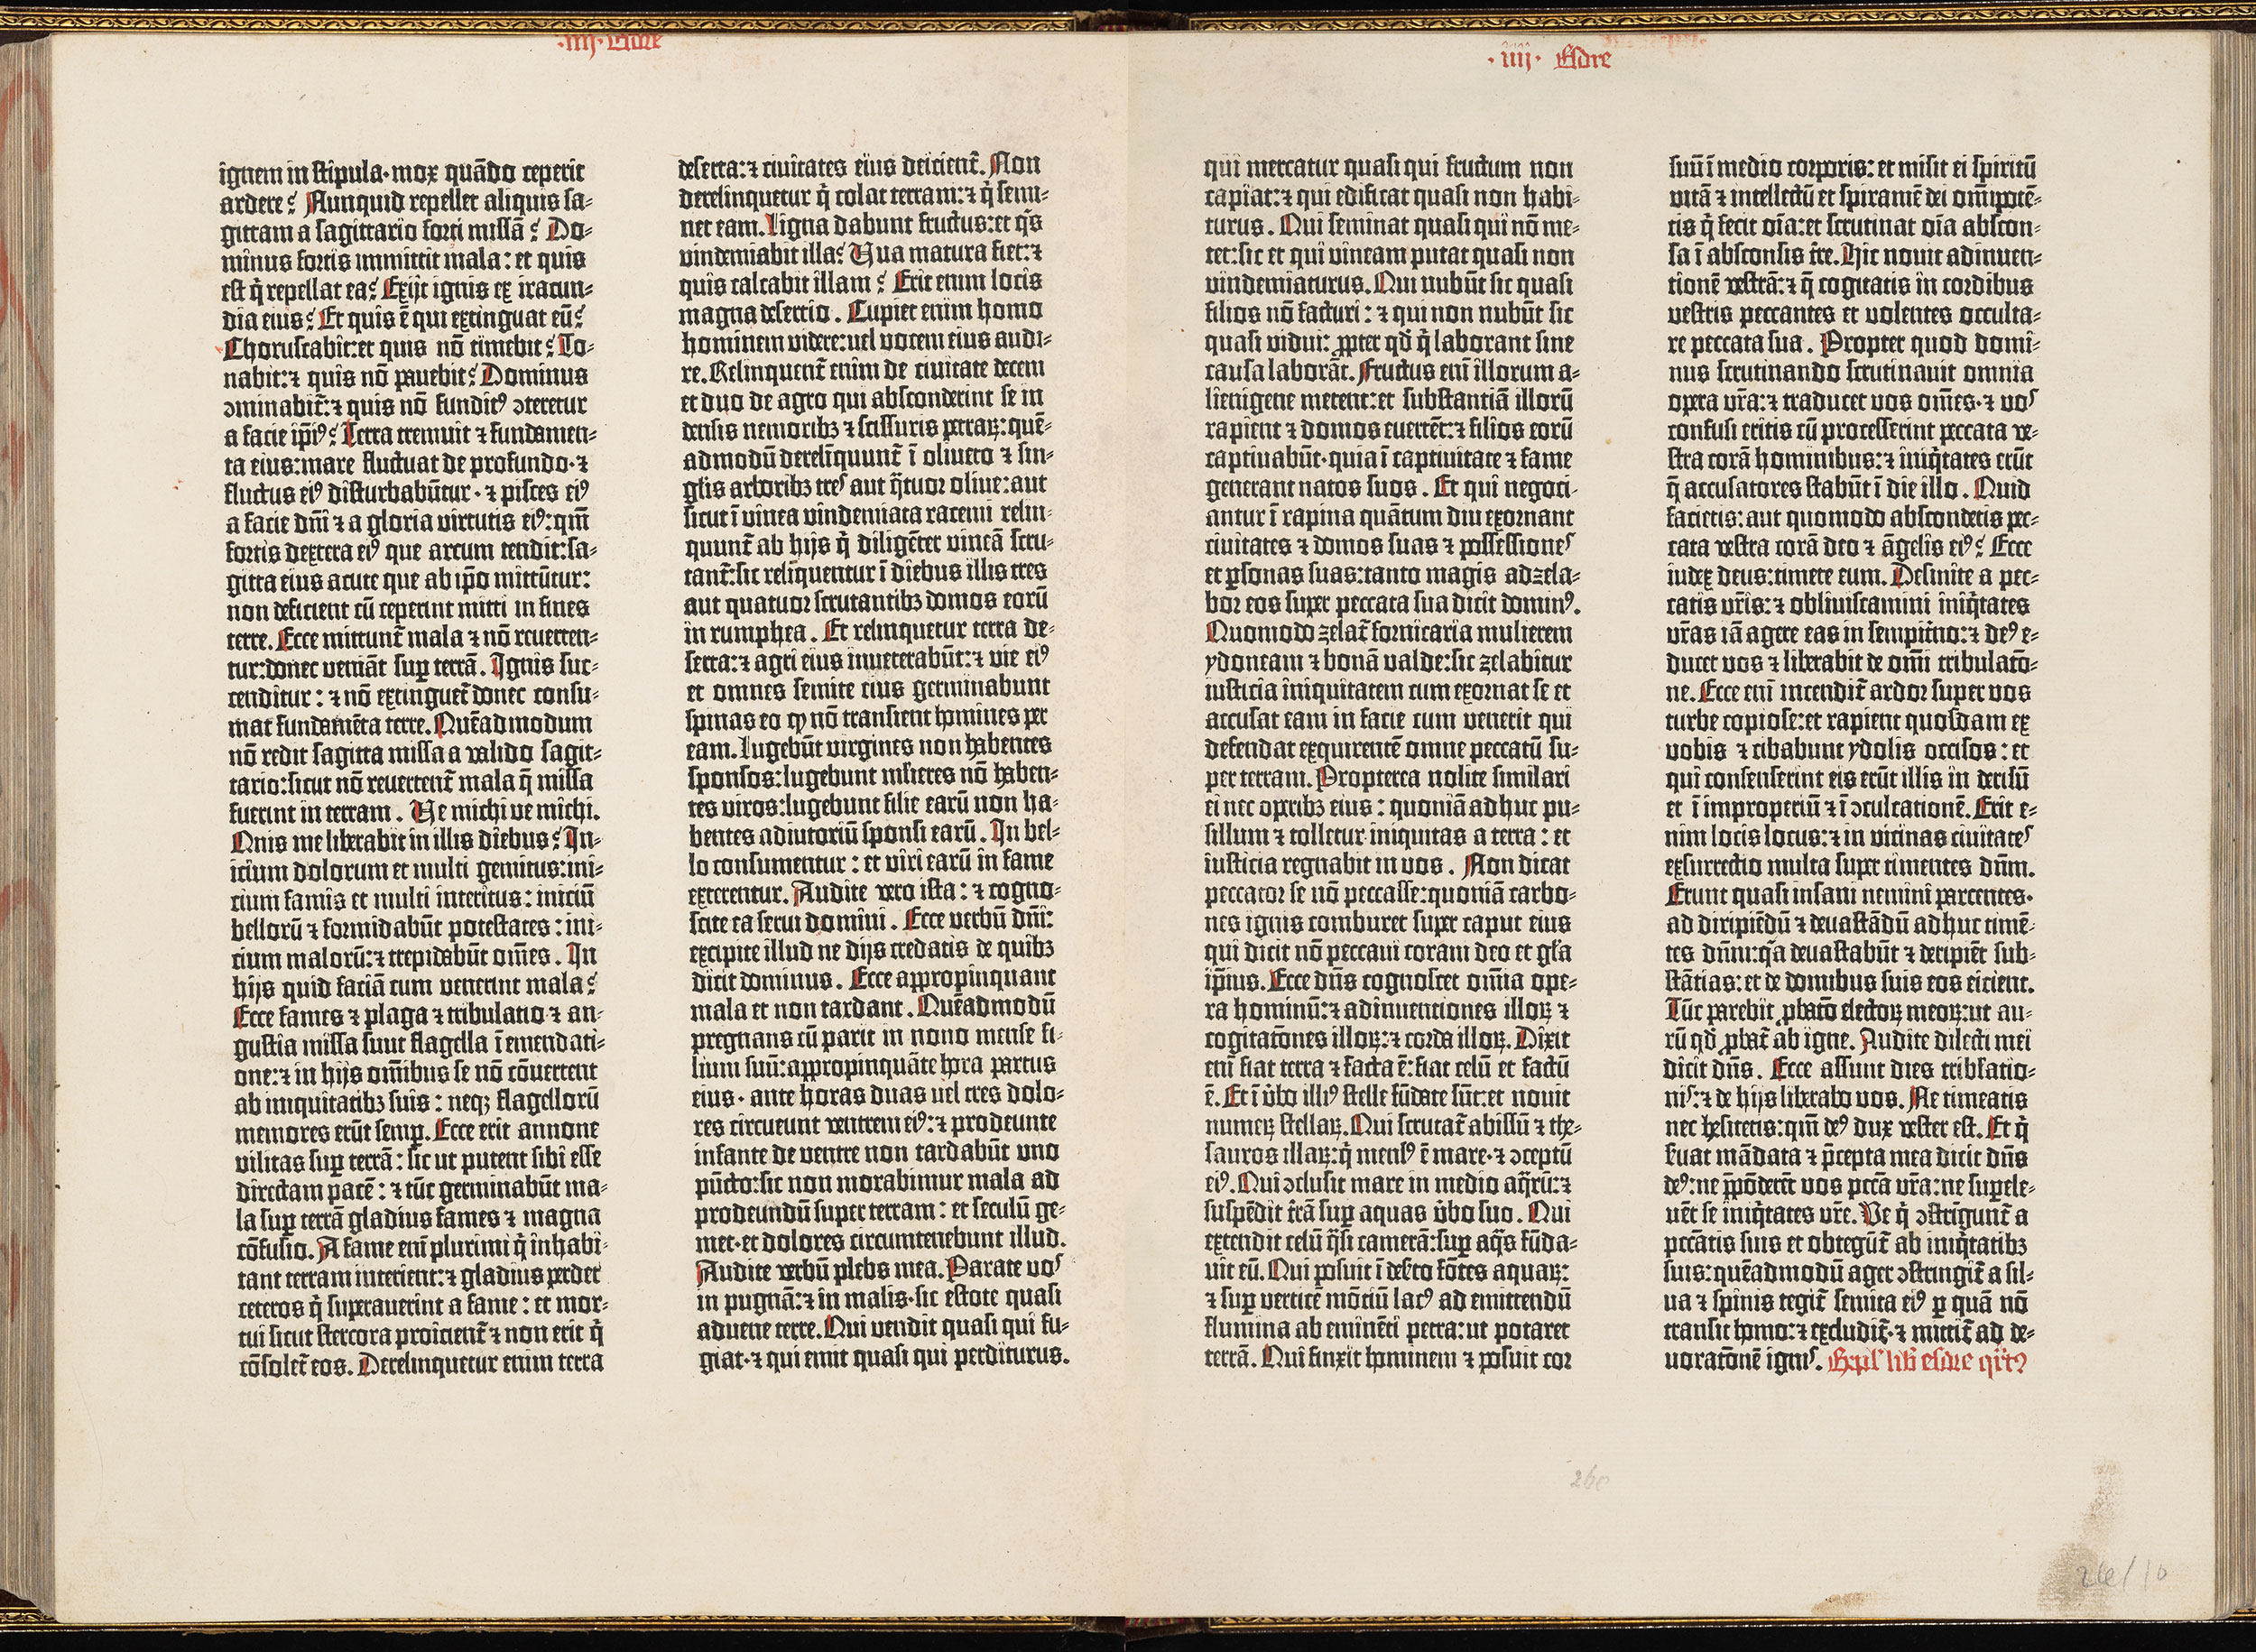 ·iiij· Esdre
ignem in stipula·mox quādo ceperit
ardere? Nunquid repellet aliquis sa-
gittam a sagittario forti missā? Do-
minus fortis immittit mala: et quis
est q̇ repellat ea? Exijt ignis ex iracun-
dia eius? Et quis ē qui extinguat eū?
Choruscabit:et quis nō timebit? To-
nabit:⁊ quis nō pauebit? Dominus
ↄminabit᷑:⁊ quis nō fundit᷒ ↄteretur
a facie ip̄i᷒? Terra tremuit ⁊ fundamen-
ta eius:mare fluctuat de profundo·⁊
fluctus ei᷒ disturbabūtur·⁊ pisces ei᷒
a facie dn̄i ⁊ a gloria virtutis ei᷒:qm̄
fortis dextera ei᷒ que arcum tendit:sa-
gitta eius acute que ab ip̄o mittūtur:
non deficient cū ceperint mitti in fines
terre. Ecce mittunt᷑ mala ⁊ nō reuerten-
tur:donec veniāt suꝑ terrā. Ignis suc-
cenditur: ⁊ nō extinguet᷑ donec consu-
mat fundamēta terre. Quēadmodum
nō redit sagitta missa a valido sagit-
tario:sicut nō reuertent᷑ mala q̄ missa
fuerint in terram. Ve michi ve michi.
Quis me liberabit in illis diebus? In-
icium dolorum et multi gemitus:ini-
cium famis et multi interitus: iniciū
bellorū ⁊ formidabūt potestates: ini-
cium malorū:⁊ trepidabūt om̄es. In
hijs quid faciā cum venerint mala?
Ecce fames ⁊ plaga ⁊ tribulatio ⁊ an-
gustia missa sunt flagella ī emendati-
one:⁊ in hijs om̄ibus se nō cōuertent
ab iniquitatibꝫ suis: neqꝫ flagellorū
memores erūt semꝑ. Ecce erit annone
vilitas suꝑ terrā: sic ut putent sibi esse
directam pacē: ⁊ tūc germinabūt ma-
la suꝑ terrā gladius fames ⁊ magna
cōfusio. A fame eni᷑ plurimi q̇ inhabi-
tant terram interient:⁊ gladius perdet
ceteros q̇ superauerint a fame: et mor-
tui sicut stercora proicient᷑ ⁊ non erit q̇
cōsolet᷑ eos. Derelinquetur enim terra
deserta:⁊ ciuitates eius deicient᷑. Non
derelinquetur q̇ colat terram:⁊ q̇ semi-
net eam. Ligna dabunt fructus:et q̇s
vindemiabit illa? Uua matura fiet:⁊
quis calcabit illam? Erit enim locis
magna desertio. Cupiet enim homo
hominem videre:uel vocem eius audi-
re. Relinquent᷑ enim de ciuitate decem
et duo de agro qui absconderint se in
densis nemoribꝫ ⁊ scissuris petraꝝ:quē-
admodū derelīquunt᷑ ī oliueto ⁊ sin-
glis arboribꝫ tres aut q̄tuor oliue:aut
sicut ī vinea vindemiata racemi relin-
quunt᷑ ab hijs q̇ diligēter vineā scru-
tant᷑:sic relīquentur ī diebus illis tres
aut quatuor scrutantibꝫ domos eorū
in rumphea. Et relinquetur terra de-
serta:⁊ agri eius inueterabūt:⁊ vie ei᷒
et omnes semite eius germinabunt
spinas eo ꝙ nō transient homines per
eam. Lugebūt virgines non habentes
sponsos:lugebunt ml̄ieres nō haben-
tes viros:lugebunt filie earū non ha-
bentes adiutoriū sponsi earū. In bel-
lo consumentur: et viri earū in fame
exterentur. Audite vero ista: ⁊ cogno-
scite ea serui domini. Ecce verbū dn̄i:
excipite illud ne dijs credatis de quibꝫ
dicit dominus. Ecce appropinquant
mala et non tardant. Quēadmodū
pregnans cū parit in nono mense fi-
lium suū:appropinquāte hora partus
eius· ante horas duas uel tres dolo-
res circueunt ventrem ei᷒:⁊ prodeunte
infante de ventre non tardabūt uno
pūcto:sic non morabimur mala ad
prodeundū super terram: et seculū ge-
met·et dolores circumtenebunt illud.
Audite verbū plebs mea. Parate vos
in pugnā:⁊ in malis·sic estote quasi
aduene terre. Qui vendit quasi qui fu-
giat·⁊ qui emit quasi qui perditurus.
·iiij· Esdre
qui mercatur quasi qui fructum non
capiat:⁊ qui edificat quasi non habi-
turus. Qui seminat quasi qui nō me-
tet:sic et qui vineam putat quasi non
vindemiaturus. Qui nubūt sic quasi
filios nō facturi: ⁊ qui non nubūt sic
quasi vidui: ꝓpter qd̄ q̇ laborant sine
causa laborāt. Fructus eni᷑ illorum a-
lienigene metent:et substantiā illorū
rapient ⁊ domos euertēt:⁊ filios eorū
captiuabūt·quia ī captiuitate ⁊ fame
generant natos suos. Et qui negoci-
antur ī rapina quātum diu exornant
ciuitates ⁊ domos suas ⁊ possessiones
et ꝑsonas suas:tanto magis adzela-
bor eos super peccata sua dicit domin᷒.
Quomodo zelat᷑ fornicaria mulierem
ydoneam ⁊ bonā valde:sic zelabitur
iusticia iniquitatem cum exornat se et
accusat eam in facie cum venerit qui
defendat exquirentē omne peccatū su-
per terram. Propterea nolite similari
ei nec operibꝫ eius: quoniā adhuc pu-
sillum ⁊ tolletur iniquitas a terra: et
iusticia regnabit in vos. Non dicat
peccator se nō peccasse:quoniā carbo-
nes ignis comburet super caput eius
qui dicit nō peccaui coram deo et gl̄a
ip̄ius. Ecce dn̄s cognoscet om̄ia ope-
ra hominū:⁊ adinuentiones illoꝝ ⁊
cogitatōnes illoꝝ:⁊ corda illoꝝ. Dixit
eni᷑ fiat terra ⁊ facta ē:fiat celū et factū
ē. Et ī v̇bo illi᷒ stelle fūdate sūt:et nouit
numeꝝ stellaꝝ. Qui scrutat᷑ abissū ⁊ the-
sauros illaꝝ:q̇ mens᷒ ē mare·⁊ ↄceptū
ei᷒. Qui ↄclusit mare in medio aq̄rū:⁊
suspēdit t̄rā suꝑ aquas v̇bo suo. Qui
extendit celū q̄si camerā:suꝑ aq̄s fūda-
uit eū. Qui posuit ī des̄to fōtes aquaꝝ:
⁊ suꝑ verticē mōtiū lac᷒ ad emittendū
flumina ab eminēti petra:ut potaret
terrā. Qui finxit hominem ⁊ posuit cor
suū ī medio corporis: et misit ei spiritū
vitā ⁊ intellectū et spiramē dei om̄ipotē-
tis q̇ fecit oīa:et scrutinat oīa abscon-
sa ī absconsis t̄re. Hic nouit adinuen-
tionē vestrā:⁊ q̄ cogitatis in cordibus
vestris peccantes et volentes occulta-
re peccata sua. Propter quod domi-
nus scrutinando scrutinauit omnia
opera vr̄a:⁊ traducet vos om̄es·⁊ vos
confusi eritis cū processerint peccata ve-
stra corā hominibus:⁊ iniq̇tates erūt
q̄ accusatores stabūt ī die illo. Quid
facietis: aut quomodo abscondetis pec-
cata vestra corā deo ⁊ āgelis ei᷒? Ecce
iudex deus:timete eum. Desinite a pec-
catis vr̄is:⁊ obliuiscamini iniq̇tates
vr̄as iā agere eas in sempit̄no:⁊ de᷒ e-
ducet vos ⁊ liberabit de om̄i tribulatō-
ne. Ecce eni᷑ incendit᷑ ardor super vos
turbe copiose:et rapient quosdam ex
vobis ⁊ cibabunt ydolis occisos: et
qui consenserint eis erūt illis in derisū
et ī improperiū ⁊ ī ↄculcationē. Erit e-
nim locis locus:⁊ in vicinas ciuitates
exsurrectio multa super timentes dn̄m.
Erunt quasi insani nemini parcentes·
ad diripiēdū ⁊ deuastādū adhuc timē-
tes dn̄m:q̄a deuastabūt ⁊ deripiēt sub-
stātias: et de domibus suis eos eicient.
Tūc parebit ꝓbatō electoꝝ meoꝝ:ut au-
rū qd̄ ꝓbat᷑ ab igne. Audite dilecti mei
dicit dn̄s. Ecce assunt dies tribl̄atio-
nis:⁊ de hijs liberabo vos. Ne timeatis
nec hesiteris:qm̄ de᷒ dux vester est. Et q̇
s̄uat mādata ⁊ p̄cepta mea dicit dn̄s
de᷒:ne p̄pōderēt vos pccā vr̄a:ne suꝑele-
uēt se iniq̇tates vr̄e. Ve q̇ ↄstrīgunt᷑ a
pccātis suis et obtegūt᷑ ab iniq̇tatibꝫ
suis: quēadmodū ager ↄstringit᷑ a sil-
ua ⁊ spinis tegit᷑ semita ei᷒ ꝑ quā nō
transit homo:⁊ excludit᷑·⁊ mittit᷑ ad de-
uoratōnē ignis. Expl̄ lib̄ esdre q̇rt᷒
260